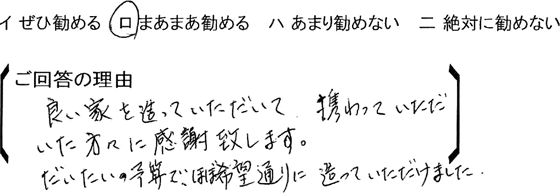 イ ぜひ勧める ロ まあまあ勧める ハ あまり勧めない ニ 絶対に勧めない
ご回答の理由
良い家を造っていただいて、携わっていただ
いた方々に感謝致します。
だいたいの予算で、ほぼ希望通りに造っていただけました。